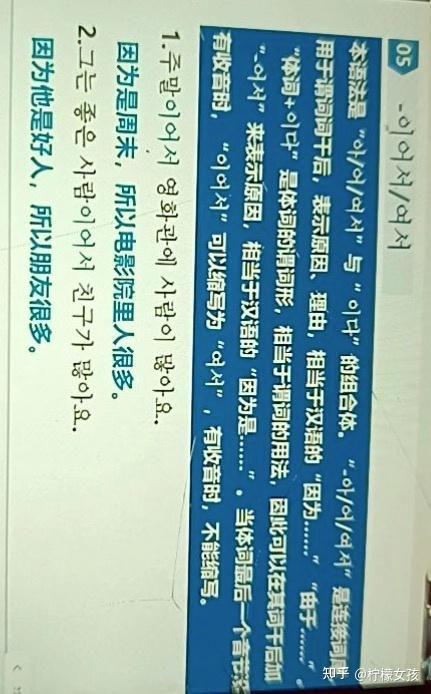 05 -이어서/여서
本语法是 "아/어/여서" 与 "이다" 的组合体。 "-아/어/여서" 是连接词
用于谓词词干后，表示原因、理由，相当于汉语的 "因为……" "由于……" 。
"体词+이다" 是体词的谓词形，相当于谓词的用法，因此可以在其词干后加
"-어서" 来表示原因，相当于汉语的 "因为是……" 。当体词最后一个音节
有收音时， "이어서" 可以缩写为 "여서" ，有收音时，不能缩写。
1.주말이어서 영화관에 사람이 많아요.
因为是周末，所以电影院里人很多。
2.그는 좋은 사람이어서 친구가 많아요.
因为他是好人，所以朋友很多。
知乎 @柠檬女孩